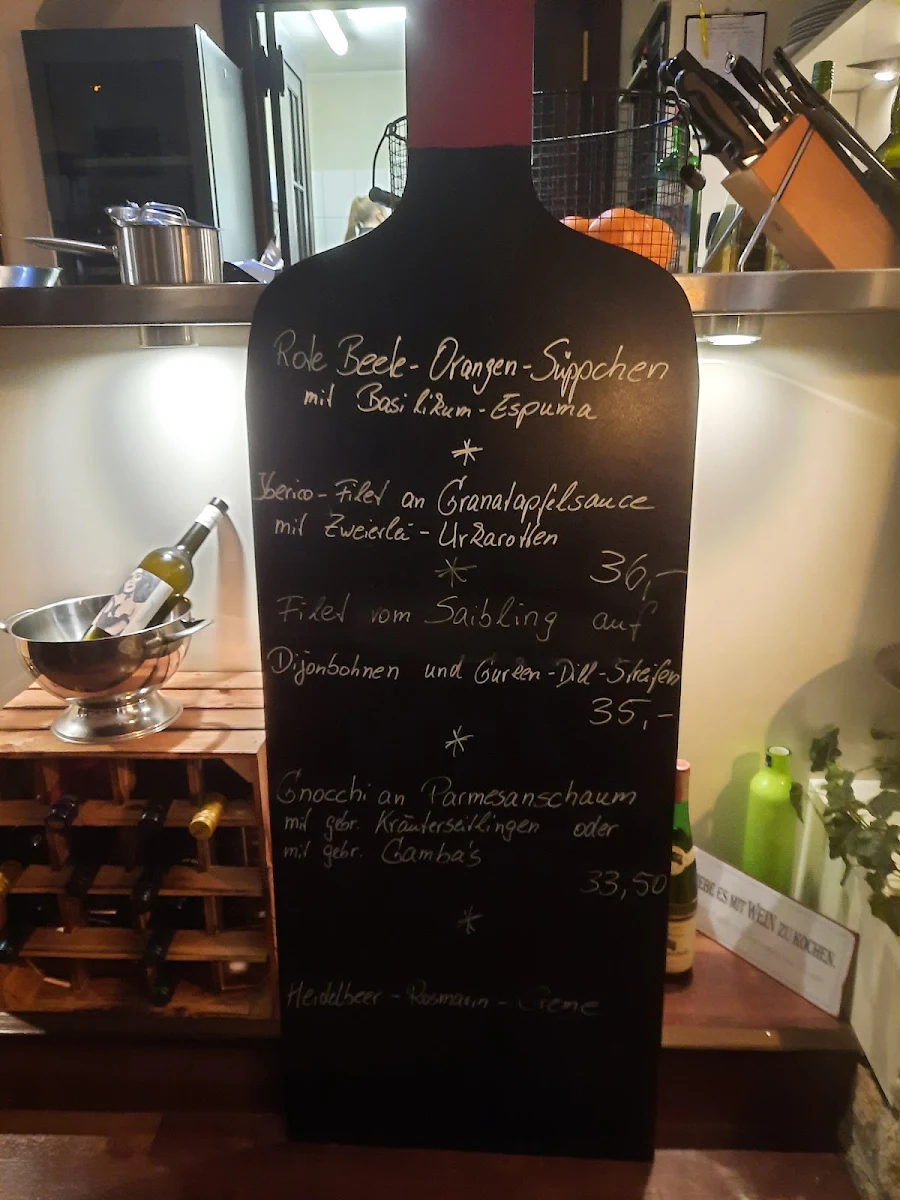 Rote Beete-Orangen-Süppchen
mit Basilikum-Espuma
*
Iberico-Filet an Granatapfelsauce
mit Zweierlei-Urkarotten
36,-
*
Filet vom Saibling auf
Dijonbohnen und Gurken-Dill-Streifen
35,-
*
Gnocchi an Parmesanschaum
mit gebr. Kräuterseitlingen oder
mit gebr. Gamba's
33,50
*
Heidelbeer-Rosmarin-Creme
EBE ES MIT WEIN ZU KOCHEN.